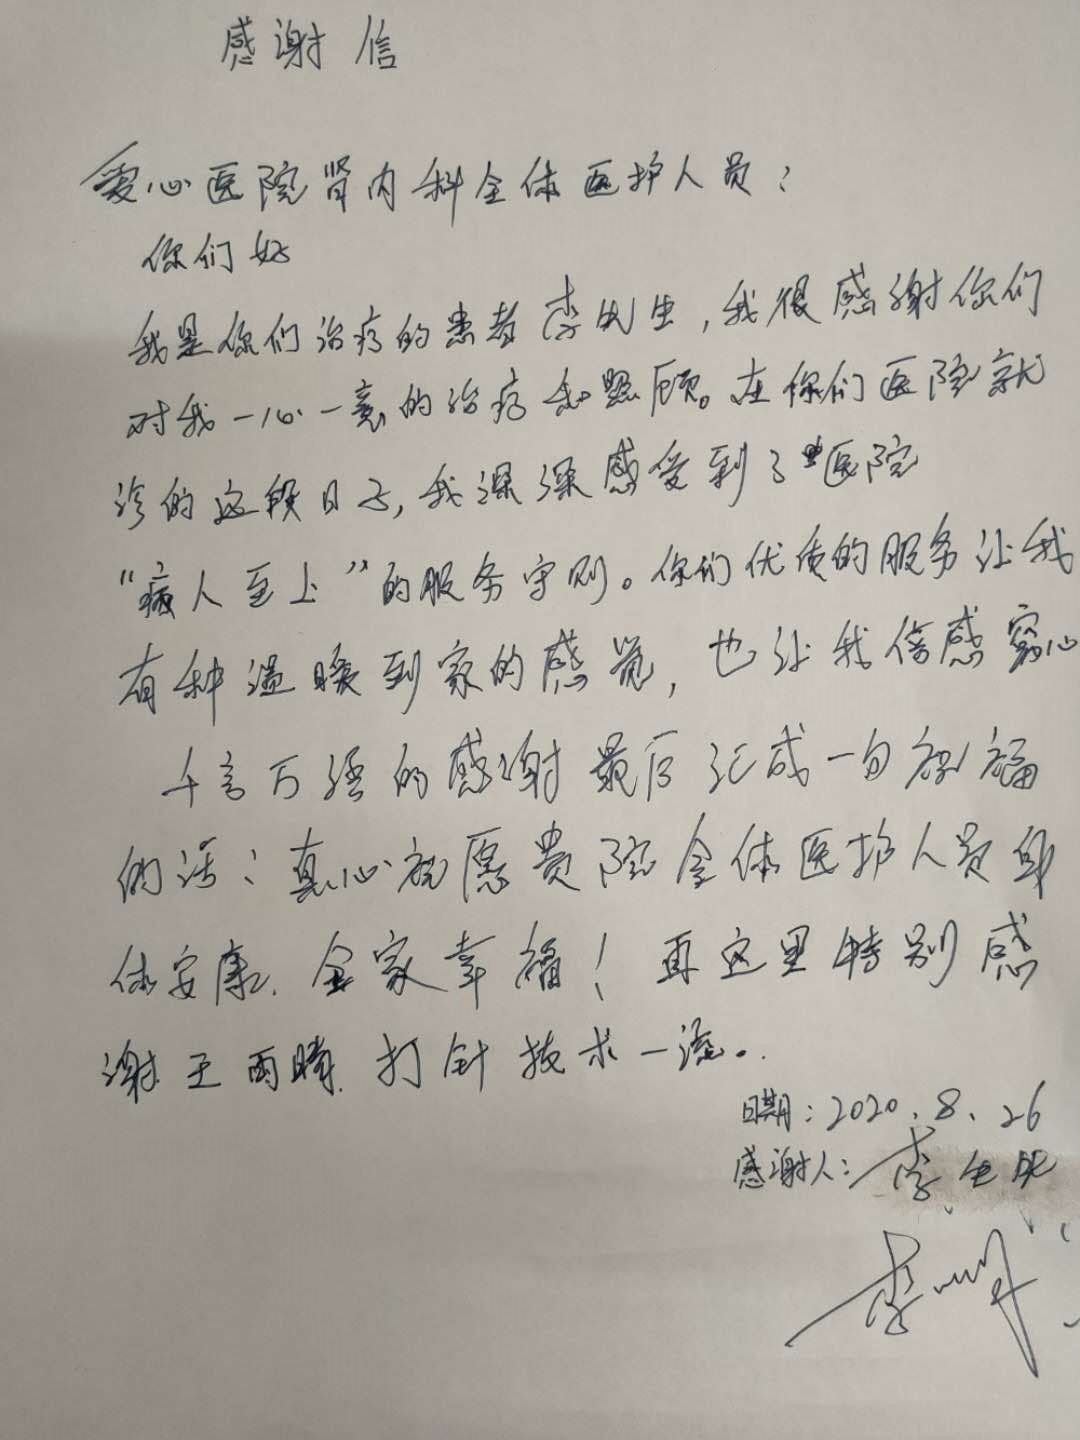 感谢信
爱心医院肾内科全体医护人员：
你们好
我是你们治疗的患者李先生，我很感谢你们
对我一心一意的治疗和照顾。在你们医院就
诊的这段日子，我深深感受到了医院
“病人至上”的服务守则。你们优质的服务让我
有种温暖到家的感觉，也让我倍感窝心
千言万语的感谢最后汇成一句祝福
的话：真心祝愿贵院全体医护人员身
体安康、全家幸福！再这里特别感
谢王雨晴打针技术一流。
日期：2020.8.26
感谢人：李
李